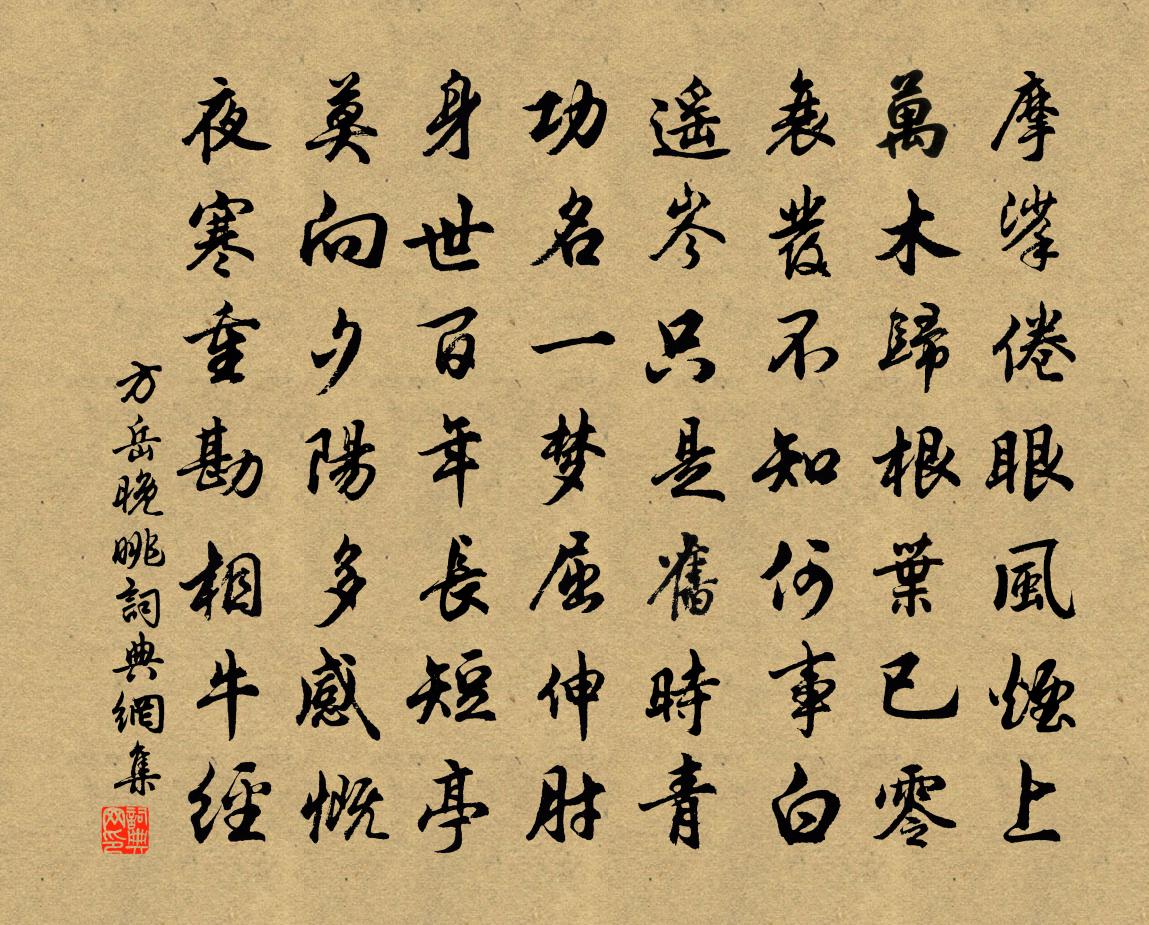 摩挲倦眼風煙上
萬木歸根葉已零
衰發不知何事白
遥岑只是舊時青
功名一梦屈伸肘
身世百年長短亭
莫向夕陽多感慨
夜寒重勘相牛經
方岳晚眺詞典網集
詞典网印